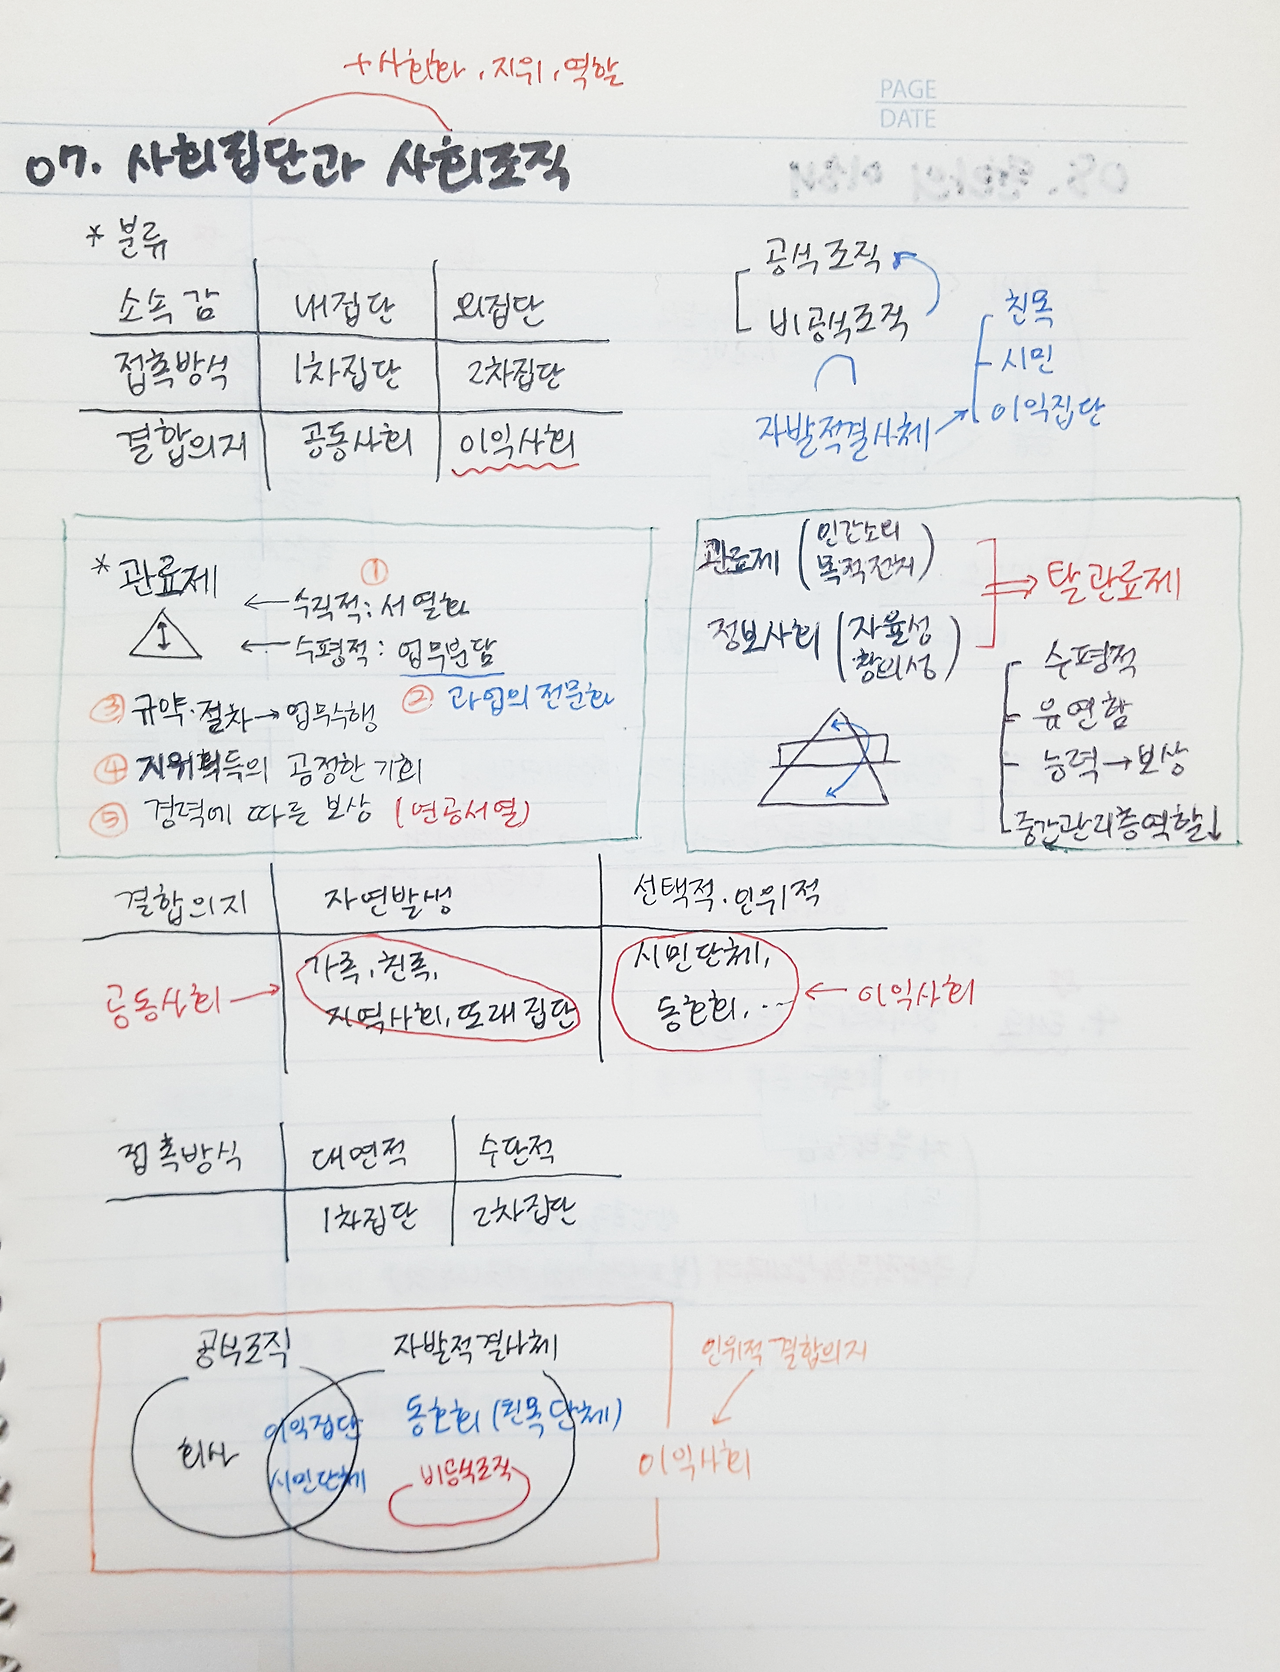 +사회화, 지위, 역할
PAGE
DATE
07. 사회집단과 사회조직
* 분류
소속감 내집단 외집단
접촉방식 1차집단 2차집단
결합의지 공동사회 이익사회
공식조직
비공식조직
자발적결사체
친목
시민
이익집단
* 관료제
① 
← 수직적: 서열화
← 수평적: 업무분담
② 과업의 전문화
③ 규약·절차→업무수행
④ 지위획득의 공정한 기회
⑤ 경력에 따른 보상 (연공서열)
관료제 (인간소외
목적전치)
정보사회 (자율성
·창의성)
⇒ 탈관료제
수평적
유연함
능력→보상
중간관리층역할↓
결합의지 자연발생 선택적·인위적
공동사회 → 가족, 친족,
지역사회, 또래집단
시민단체,
동호회, … ← 이익사회
접촉방식 대면적 수단적
1차집단 2차집단
공식조직 자발적결사체
회사
이익집단
시민단체
동호회 (친목단체)
비공식조직
인위적 결합의지
이익사회